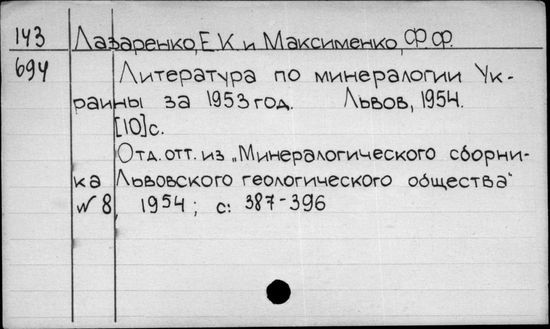 143 Лазаренко, Е К и Максименко, Ф Ф.
694 Литература по минералогии Ук-
раины за 1953 год. Львов, 1954.
[10]с.
Отд. отт. из „Минералогического сборни-
ка Львовского геологического общества"
№ 8, 1954; с: 387-396